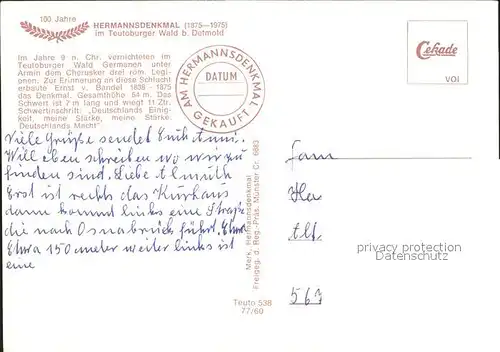 100 Jahre
HERMANNSDENKMAL (1875—1975)
im Teutoburger Wald b. Detmold
Im Jahre 9 n. Chr. vernichteten im
Teutoburger Wald Germanen unter
Armin dem Cherusker drei röm. Legi-
onen. Zur Erinnerung an diese Schlacht
erbaute Ernst v. Bandel 1838 - 1875
das Denkmal. Gesamthöhe 54 m. Das
Schwert ist 7 m lang und wiegt 11 Ztr.
Schwertinschrift: „Deutschlands Einig-
keit, meine Stärke, meine Stärke
Deutschlands Macht"
AM HERMANNSDENKMAL
DATUM
GEKAUFT
Cekade
VOI
Viele Grüße sendet Euch Anni.
Will eben schreiben wo wir zu
finden sind. Liebe Almuth
Erst ist rechts das Kurhaus
dann kommt links eine Straße
die nach Osnabrück führt. Etwa
Etwa 150 meter weiter links ist
eine
Merk. Hermannsdenkmal
Freigeg. d. Reg.-Präs. Münster Cr. 6683
Teuto 538
77/60
Fam
Her
Alt
563
privacy protection
Datenschutz